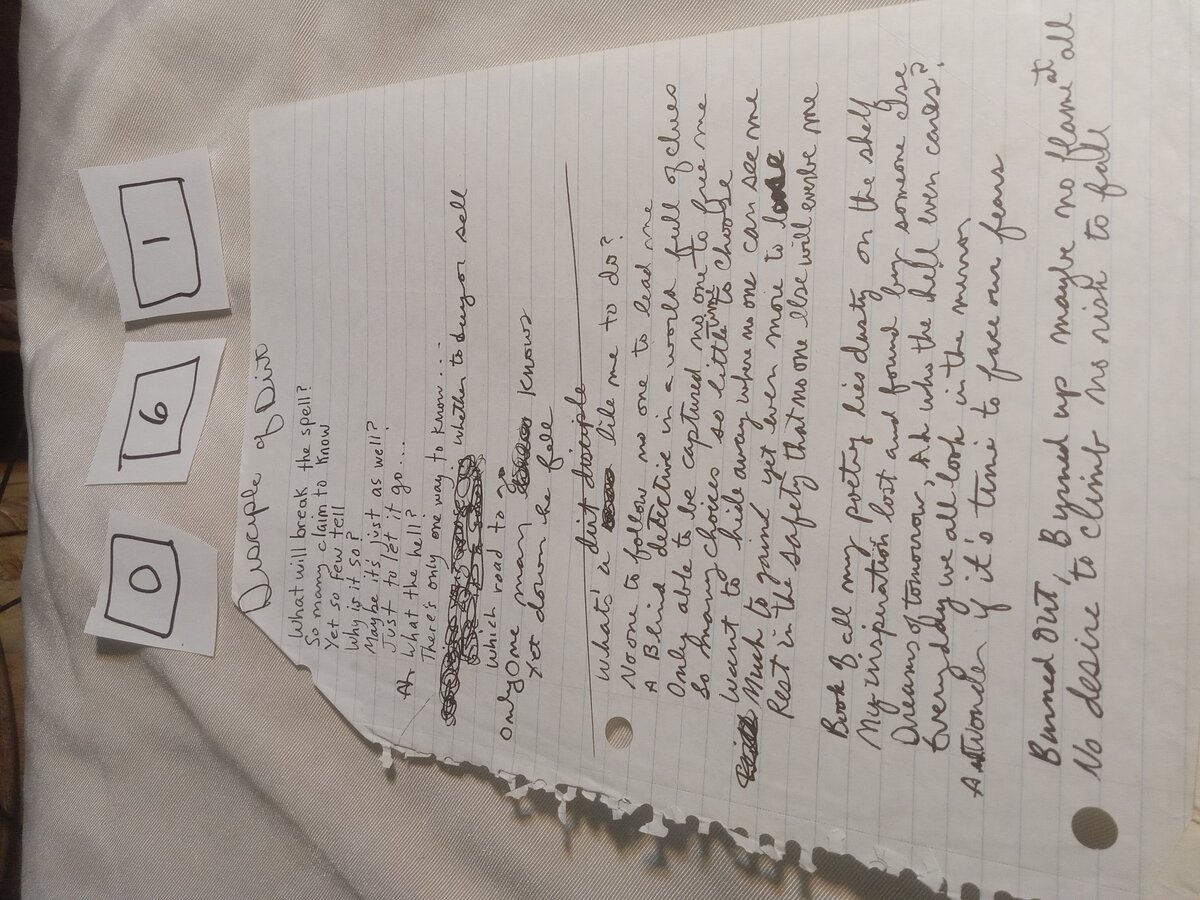 0 6 1
Disciple of Dirt
What will break the spell?
So many claim to know
Yet so few tell
Why is it so?
Maybe it's just as well?
Just to let it go...
Ah What the hell?
There's only one way to know...
whether to buy or sell
Which road to go
Only One man knows
Yet down he fell
What's a dirt disciple like me to do?
No one to follow no one to lead me
A Blind detective in a world full of clues
Only able to be captured no one to free me
So many choices so little time to choose
Want to hide away where no one can see me
Much to gain yet even more to lose
Rest in the safety that no one lse will ever be me
Book of all my poetry lies dusty on the shelf
My inspiration lost and found by someone else
Dreams of tomorrow, Ah who the hell even cares?
Everyday we all look in the mirror
And wonder if it's time to face our fears
Burned out, Byrned up maybe no flame at all
No desire to climb no risk to fall